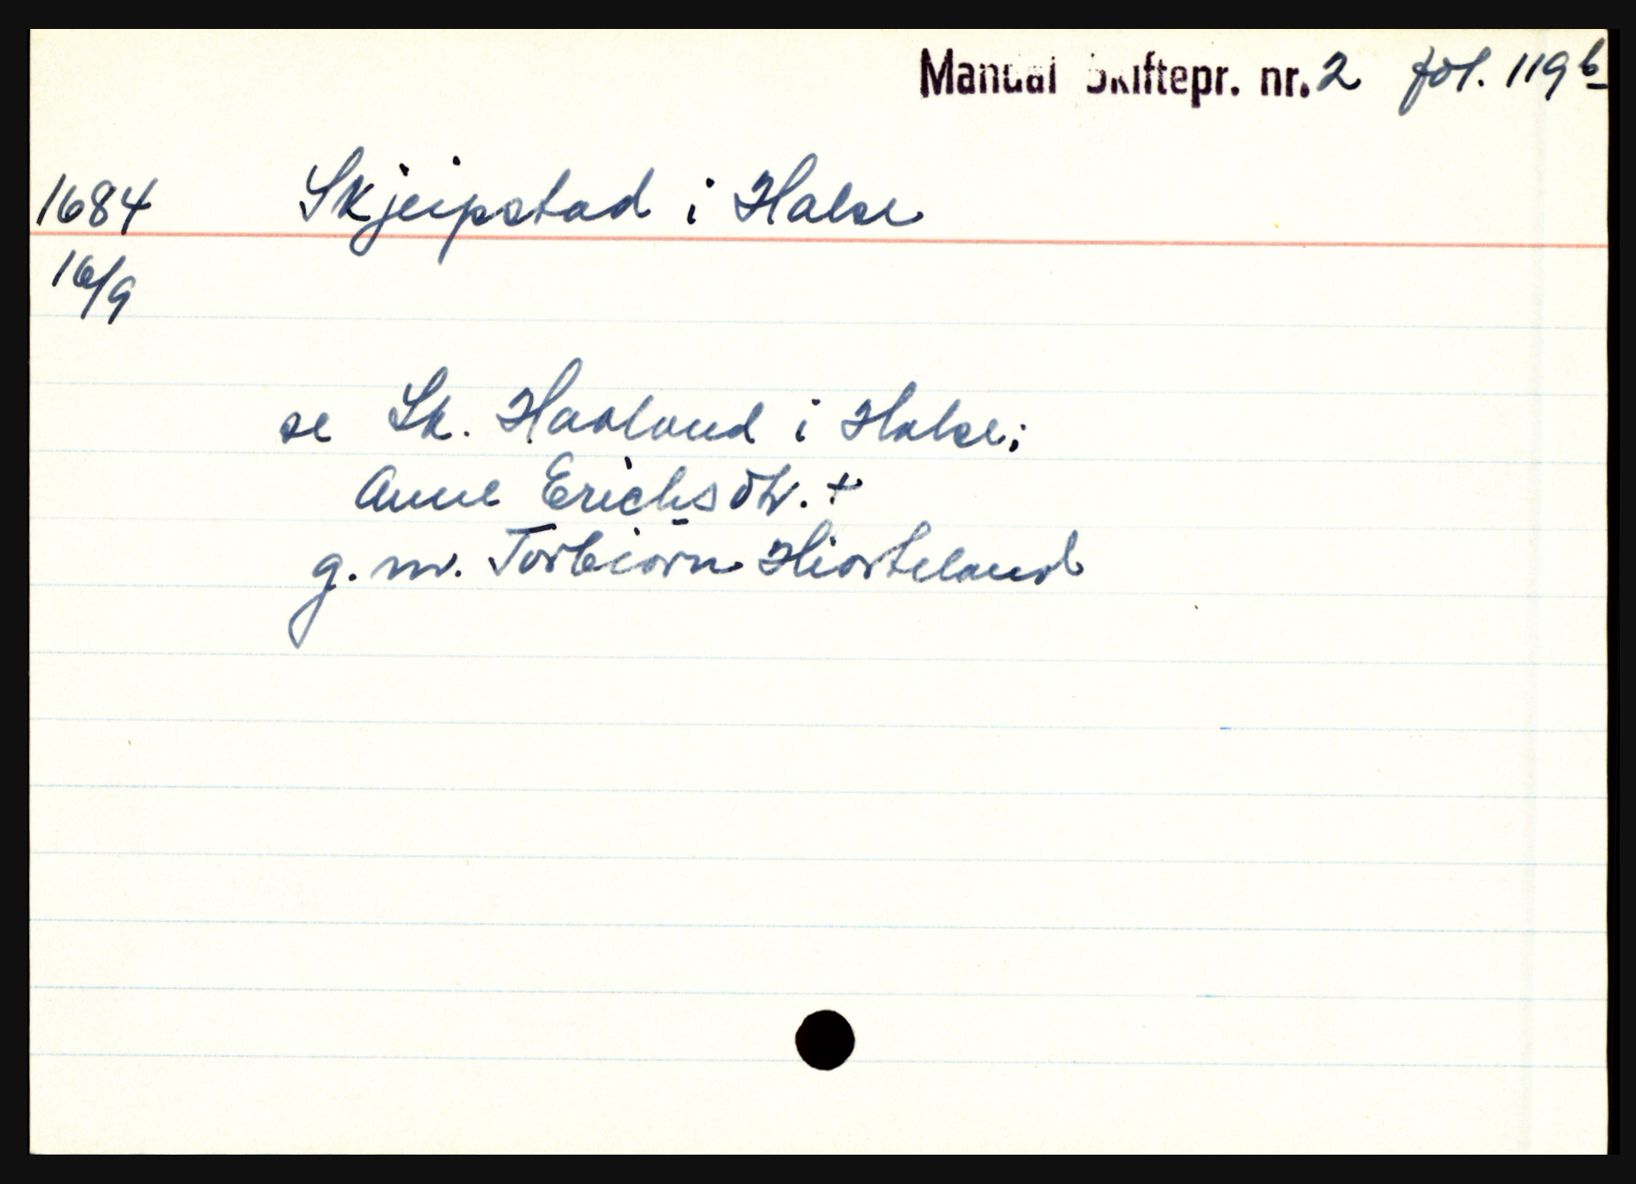 Mandal Skiftepr. nr. 2 fol. 119b
1684 Skjeipstad i Halse
16/9
se Sk. Haaland i Halse;
Anne Erichsdtr. +
g. m. Torbiørn Hiorteland